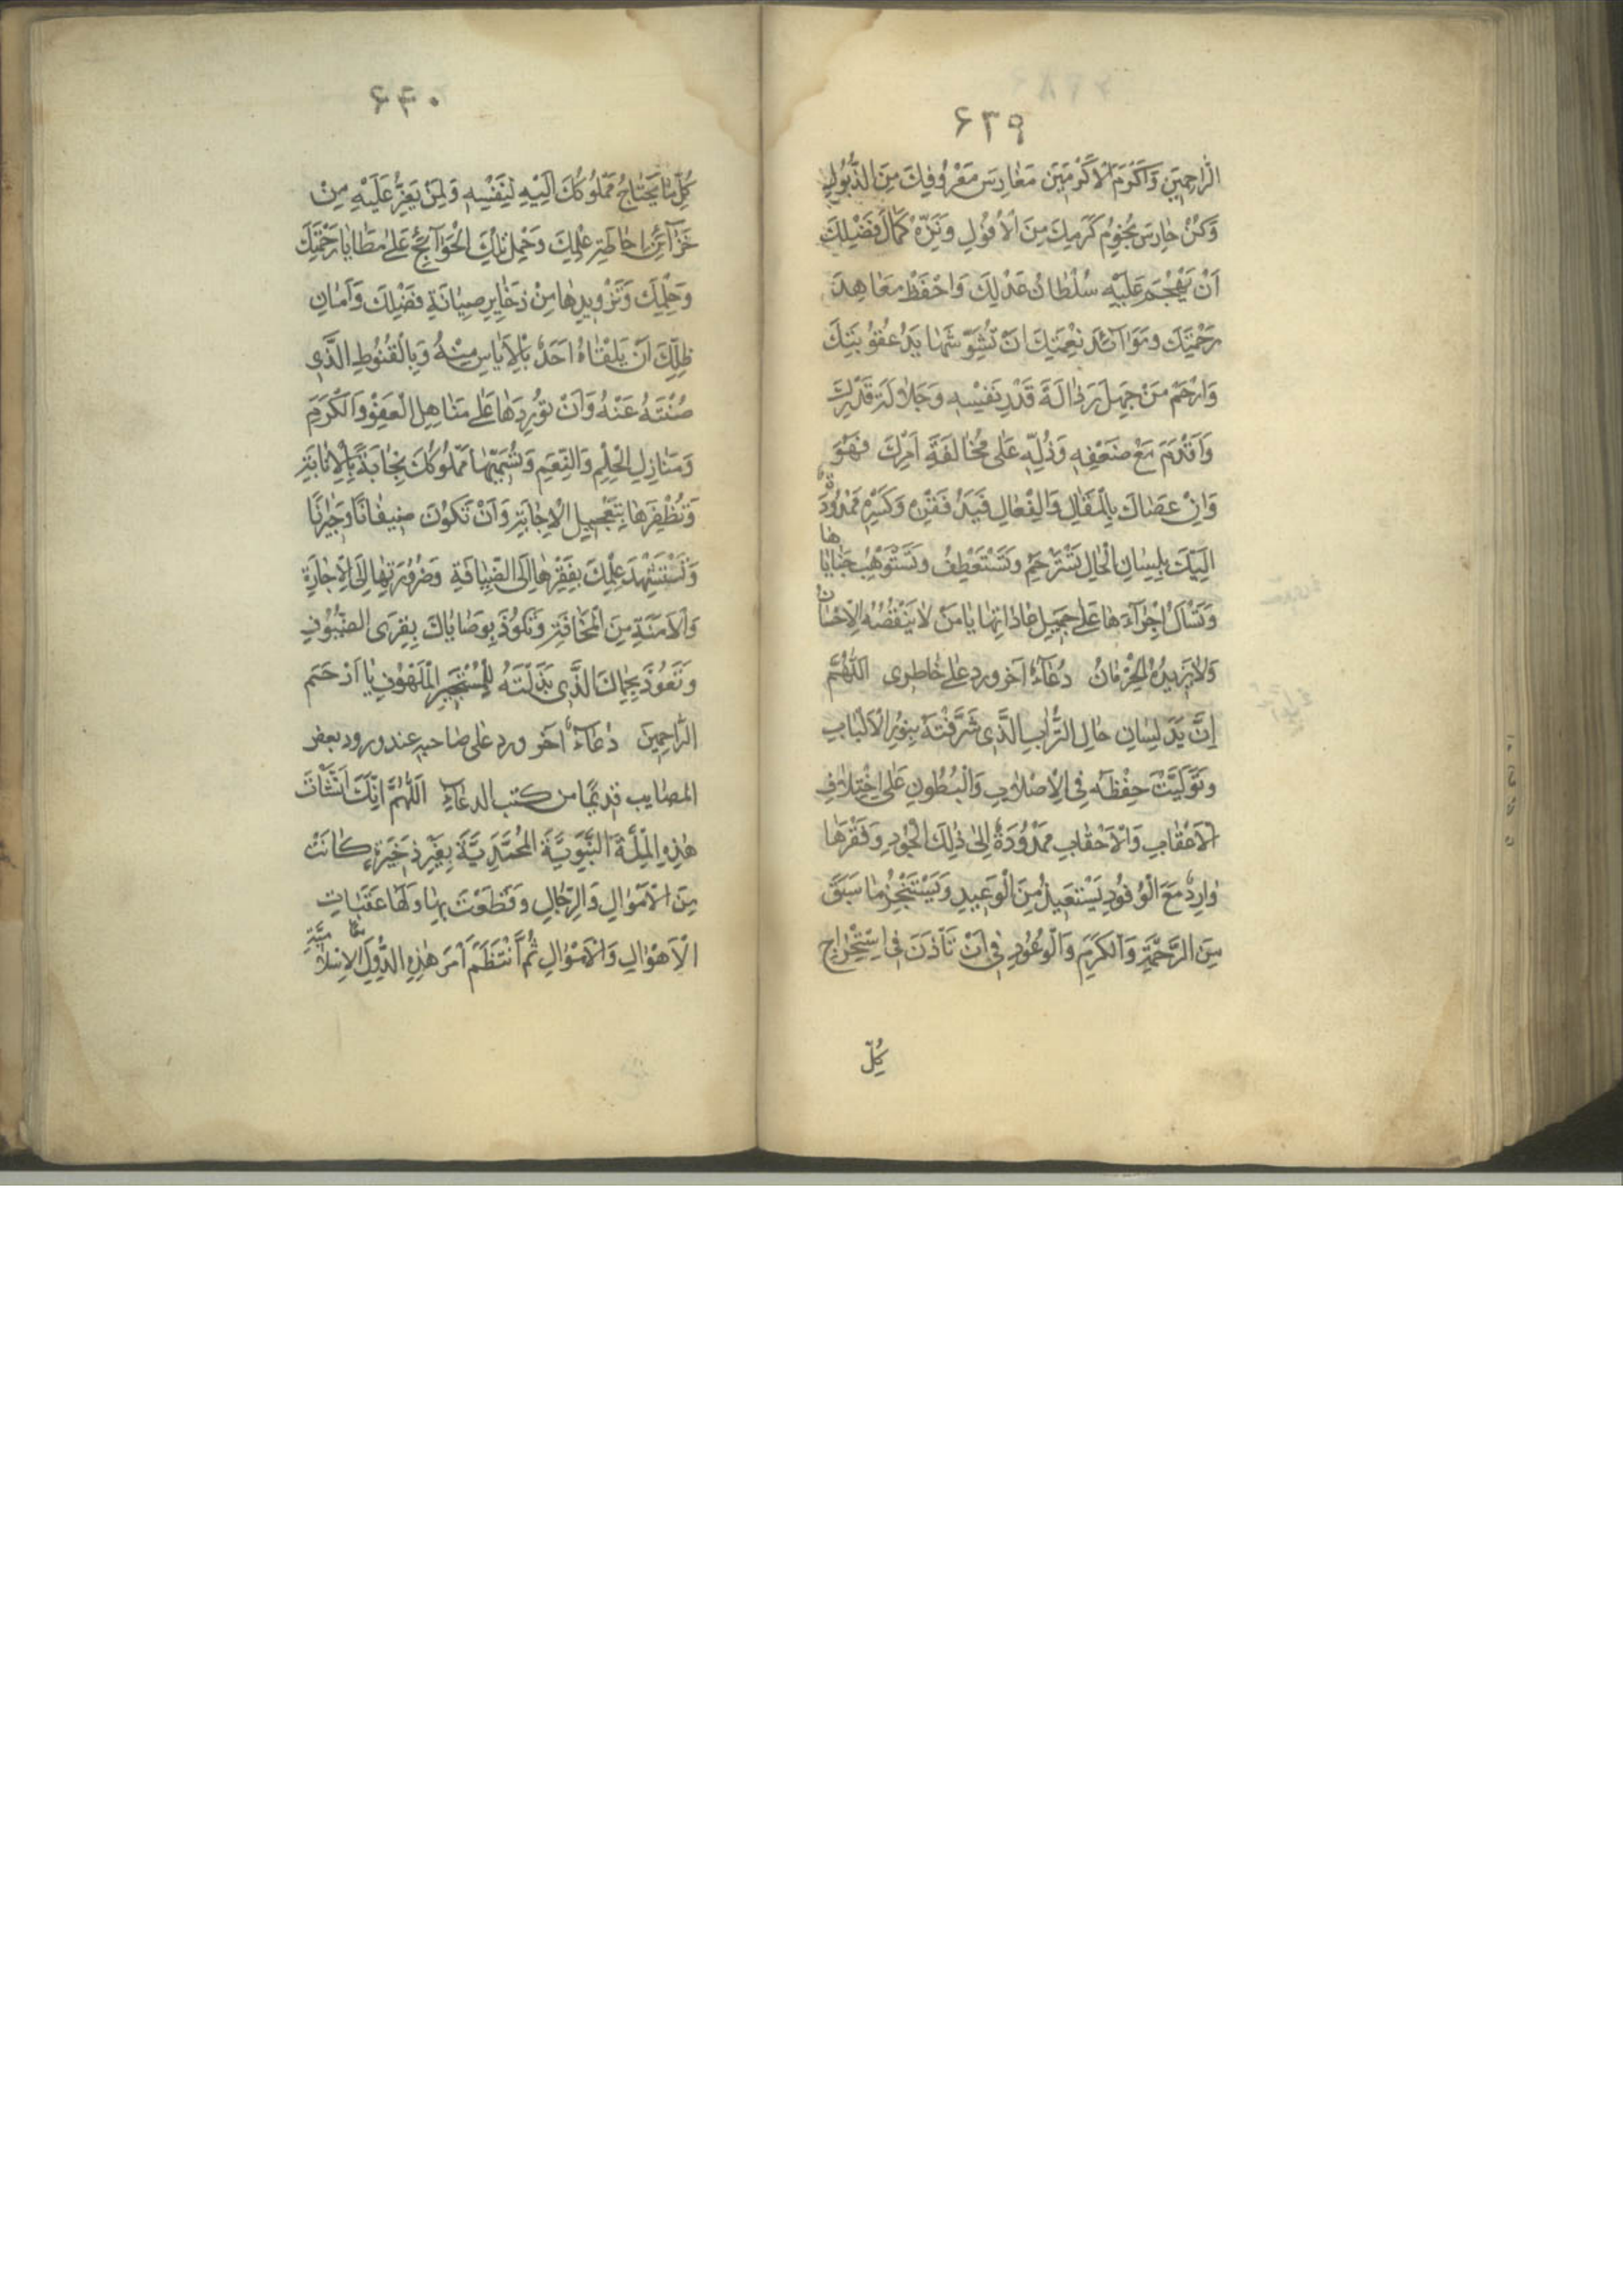 ۶۳۹
الرَّاحِمِينَ وَاَكْرَمَ الْاَكْرَمِينَ مَغَارِسَ مَعْرُوفِكَ مِنَ الذُّبُولِ
وَكُنْ حَارِسَ نُجُومِ كَرَمِكَ مِنَ الْاُفُولِ وَنَزِّهْ كَمَالَ فَضْلِكَ
اَنْ يَهْجُمَ عَلَيْهِ سُلْطَانُ عَدْلِكَ وَاحْفَظْ مَعَاهِدَ
رَحْمَتِكَ وَمَوَائِدَ نِعْمَتِكَ اَنْ تُشَوِّشَهَا يَدُ عُقُوبَتِكَ
وَارْحَمْ مَنْ جَهِلَ رَذَالَةَ قَدْرِ نَفْسِهِ وَجَلَالَةَ قَدْرِكَ
وَاَقْدَمَ مَعَ ضَعْفِهِ وَذُلِّهِ عَلٰى مُخَالَفَةِ اَمْرِكَ فَهُوَ
وَاِنْ عَصَاكَ بِالْمَقَالِ وَالْفِعَالِ فَيَدُ فَقْرِهِ وَكَسْرِهِ مَمْدُودَةٌ
اِلَيْكَ بِلِسَانِ الْحَالِ تَسْتَرْحِمُ وَتَسْتَعْطِفُ وَتَسْتَوْهِبُ جَنَايَاتِهَا
وَتَسْاَلُ اِجْرَاءَهَا عَلٰى جَمِيلِ عَادَاتِهَا يَا مَنْ لَا يَنْقُصُهُ الْاِحْسَانُ
وَلَا يَزِيدُهُ الْحِرْمَانُ دُعَاءٌ آخر ورد على خاطرى اَللّٰهُمَّ
اِنَّ يَدَ لِسَانِ حَالِ التُّرَابِ الَّذِى شَرَّفْتَهُ بِنُورِ الْاَلْبَابِ
وَتَوَلَّيْتَ حِفْظَهُ فِى الْاَصْلَابِ وَالْبُطُونِ عَلَى اخْتِلَافِ
الْاَعْقَابِ وَالْاَحْقَابِ مَمْدُودَةٌ اِلٰى ذٰلِكَ الْجُودِ وَفَقْرُهَا
وَارِدٌ مَعَ الْوُفُودِ يَسْتَعِيذُ مِنَ الْوَعِيدِ وَيَسْتَنْجِزُ مَا سَبَقَ
مِنَ الرَّحْمَةِ وَالْكَرَمِ وَالْوُعُودِ فِى اَنْ تَأْذَنَ فِى اسْتِخْرَاجِ
كُلِّ
۶۴۰
كُلِّ مَا يَحْتَاجُ مَمْلُوكُكَ اِلَيْهِ لِنَفْسِهِ وَلِمَنْ يَعِزُّ عَلَيْهِ مِنْ
خَزَائِنِ اِحَاطَةِ عِلْمِكَ وَحَمْلِ تِلْكَ الْحَوَائِجِ عَلٰى مَطَايَا رَحْمَتِكَ
وَحِلْمِكَ وَتَزْوِيدِهَا مِنْ ذَخَايِرِ صِيَانَةِ فَضْلِكَ وَاَمَانِ
ظِلِّكَ اَنْ يَلْقَاهُ اَحَدٌ بِالْاِيَاسِ مِنْهُ وَبِالْقُنُوطِ الَّذِى
صُنْتَهُ عَنْهُ وَاَنْ تُورِدَهَا عَلٰى مَنَاهِلِ الْعَفْوِ وَالْكَرَمِ
وَمَنَازِلِ الْحِلْمِ وَالنِّعَمِ مَمْلُوكُكَ بِالْاِنَابَةِ
وَتُظْفِرَهَا بِتَعْجِيلِ الْاِجَابَةِ وَاَنْ تَكُونَ ضِيفَانًا وَجِيرَانًا
وَتَسْتَشْهِدَ عِلْمَكَ بِفَقْرِهَا اِلَى الضِّيَافَةِ وَضَرُورَتِهَا اِلَى الْاِجَارَةِ
وَالْاَمَنَةِ مِنَ الْمَخَافَةِ وَتَلُوذَ بِوَصَايَاكَ بِقِرَى الضُّيُوفِ
وَتَعُوذَ بِحِمَاكَ الَّذِى بَذَلْتَهُ لِلْمُسْتَجِيرِ الْمَلْهُوفِ يَا اَرْحَمَ
الرَّاحِمِينَ دُعَاءٌ آخر ورد على صاحبه عند ورود بعض
المصايب قديما من كتب الدعاء اَللّٰهُمَّ اِنَّكَ اَنْشَأْتَ
هٰذِهِ الْمِلَّةَ النَّبَوِيَّةَ الْمُحَمَّدِيَّةَ بِغَيْرِ ذَخِيرَةٍ كَانَتْ
مِنَ الْاَمْوَالِ وَالرِّجَالِ وَقَطَعْتَ بِهَا وَلَهَا عَقَبَاتِ
الْاَهْوَالِ وَالْاَمْوَالِ ثُمَّ انْتَظَمَ اَمْرُ هٰذِهِ الدُّوَلِ الْاِسْلَامِيَّةِ